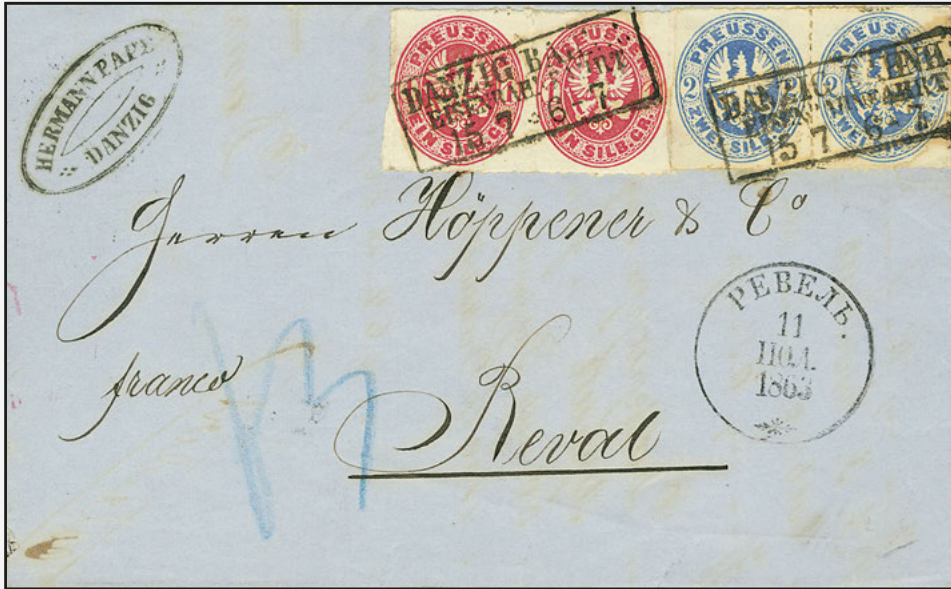 HERMANN PAPE
DANZIG
PREUSSEN
EIN SILB.GR.
PREUSSEN
EIN SILB.GR.
PREUSSEN
2
ZWEI SILB.
PREUSSEN
2
ZWEI
DANZIG
15 7 * 6-7
15 7 6-7
Herren Höppener & Co
franco
Reval
РЕВЕЛЬ.
11
ІЮЛ.
1863